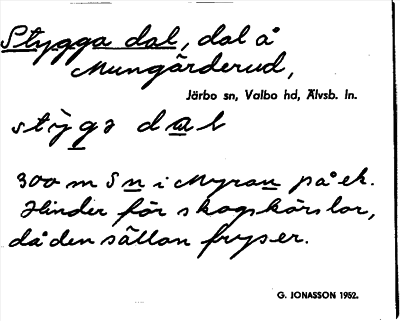 Stygga dal, dal å
Mungärderud,
Järbo sn, Valbo hd, Älvsb. ln.
stỳgə dal
300 m S n i Myran på ek.
Hinder för skogskörslor,
då den sällan fryser.
G. JONASSON 1952.